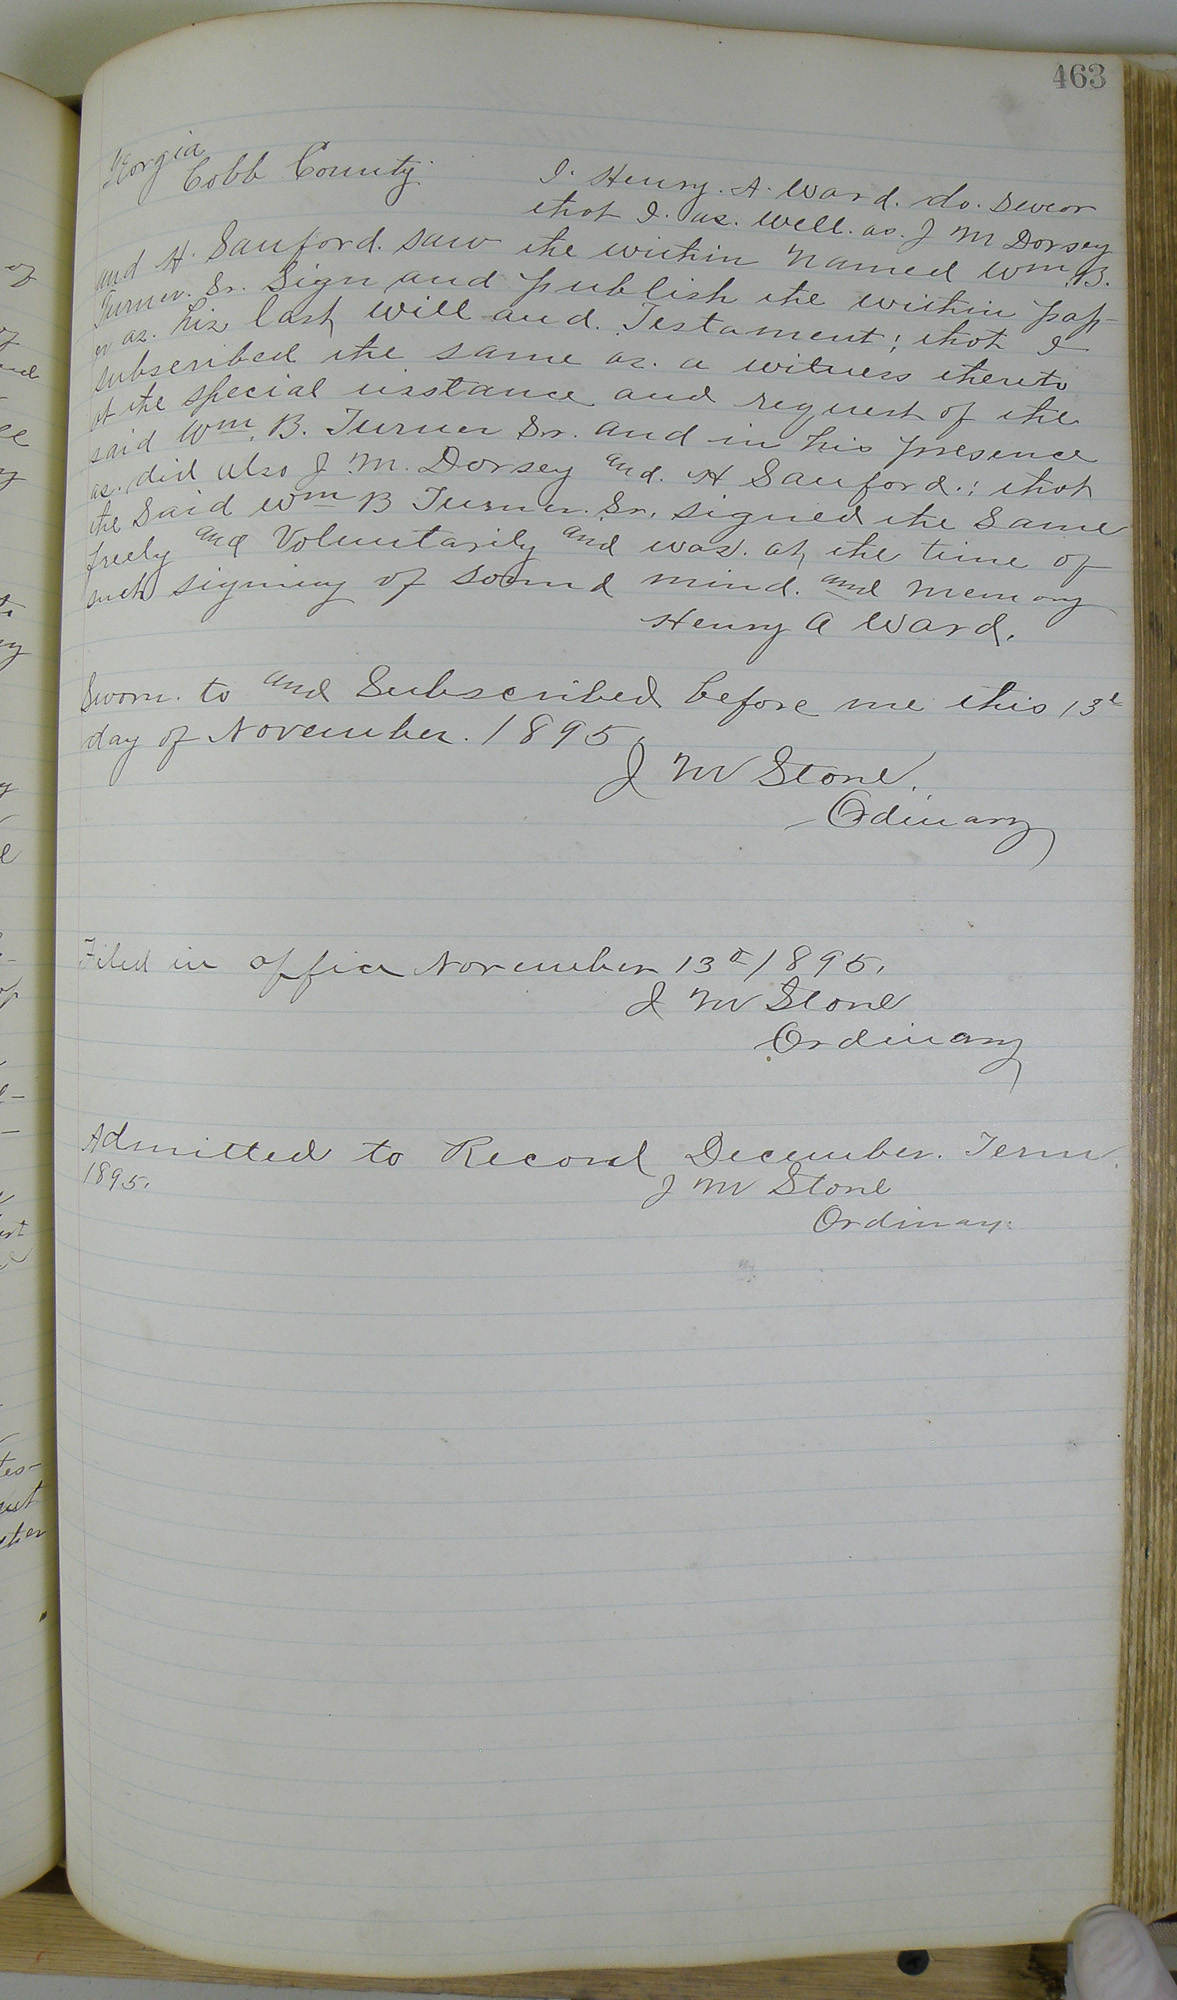 463
Georgia
Cobb County
I. Henry. A. Ward. do. swear
that I. as. well. as. J M Dorsey
and H. Sanford. saw the within named Wm. B.
Turner. Sr. Sign and publish the within pap-
er as. his last will and. Testament; that I
subscribed the same as. a witness thereto
at the special instance and request of the
said Wm. B. Turner Sr. and in his presence
as. did also J. M. Dorsey and. H Sanford.; that
the Said Wm B Turner. Sr. signed the Same
freely and Voluntarily and was. at the time of
such signing of sound mind. and memory
Henry A Ward.
Sworn. to and Subscribed before me this 13th
day of November. 1895.
J M Stone.
Odinary
Filed in office November 13th 1895.
J M Stone
Ordinary
Admitted to Record December. Term.
1895.
J M Stone
Ordinary.